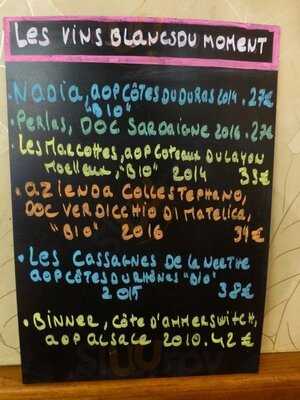 LES VINS BLANCS DU MOMENT
• NADIA, AOP CÔTES DU DURAS 2014. 27€
"BIO"
• PERLAS, DOC SARDAIGNE 2016. 27€
• LES MARCOTTES, AOP COTEAUX DU LAYON
MOELLEUX, "BIO" 2014 33€
• AZIENDA COLLESTEPHANO,
DOC VERDICCHIO DI MATELICA,
"BIO" 2016 34€
• LES CASSAGNES DE LA NERTHE
AOP CÔTES DU RHÔNES "BIO"
2015 38€
• BINNER, CÔTE D'AMMERSWITCH,
AOP ALSACE 2010. 42€